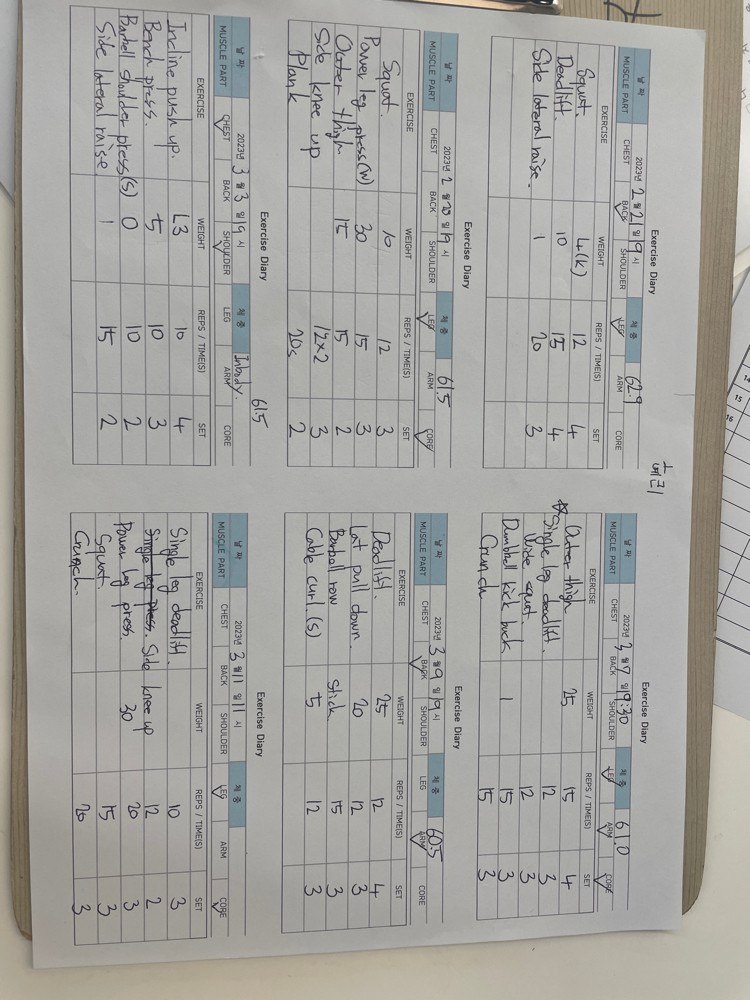 Exercise Diary
날짜 2023년 2월 21일 19시 체중 62.9
MUSCLE PART CHEST BACK SHOULDER LEG ARM CORE
EXERCISE WEIGHT REPS / TIME(S) SET
Squat. 4(k) 12 4
Deadlift. 10 15 4
Side lateral raise. 1 20 3
Exercise Diary
날짜 2023년 2월 28일 19시 체중 61.5
MUSCLE PART CHEST BACK SHOULDER LEG ARM CORE
EXERCISE WEIGHT REPS / TIME(S) SET
Squat. 10 12 3
Power leg press(N) 30 15 3
Outer thigh 15 15 2
Side knee up 12x2 3
Plank 20s 2
61.5
Exercise Diary
날짜 2023년 3월 3일 19시 체중 Inbody.
MUSCLE PART CHEST BACK SHOULDER LEG ARM CORE
EXERCISE WEIGHT REPS / TIME(S) SET
Incline push up. L3 10 4
Bench press. 5 10 3
Barbell shoulder press(S) 0 10 2
Side lateral raise 1 15 2
Exercise Diary
날짜 2023년 3월 7일 19:30 체중 61.0
MUSCLE PART CHEST BACK SHOULDER LEG ARM CORE
EXERCISE WEIGHT REPS / TIME(S) SET
☆ Outer thigh 25 15 4
Single leg deadlift. 12 3
Wide squat. 12 3
Dumbbell kick back 1 15 3
Crunch 15 3
Exercise Diary
날짜 2023년 3월 9일 19시 체중 60.5
MUSCLE PART CHEST BACK SHOULDER LEG ARM CORE
EXERCISE WEIGHT REPS / TIME(S) SET
Deadlift. 25 12 4
Lat pull down. 20 12 3
Barbell row stick 15 3
Cable curl.(s) 5 12 3
Exercise Diary
날짜 2023년 3월 11일 11시 체중
MUSCLE PART CHEST BACK SHOULDER LEG ARM CORE
EXERCISE WEIGHT REPS / TIME(S) SET
Single leg deadlift. 10 3
Single leg press. Side knee up 12 2
Power leg press. 30 20 3
Squat. 15 3
Crunch. 20 3
14
15
16